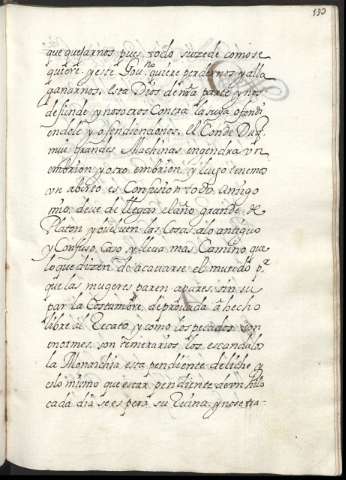 133
que quejarnos pues todo suzede como se
quiere, y este Gou.no quiere perdernos, y alla
ganarnos. Esta Dios de nra parte y nos
defiende y nosotros contra la suya ofendi
endole y ofendiendonos. El Conde Duq
mui grandes Machinas engendra vn
embrion, y otro embrion, y luego tenemos
vn aborto es Confusion todo, Amigo
mio, deve de llegar el año grande de
Platon y buelven las Cosas al antiguo
y Confuso Caos y lleva mas Camino, que
lo que dizen de acavarse el mundo pr
que las mugeres paren a pares, sin
par la Costumbre depravada a hecho
libre al Recato, y como los pecados son
enormes, son temerarios los escandalos
la Monarchia esta pendiente del dicho q
es lo mismo que estar pendiente de vn hilo
cada dia se espera su Ruina, y no se tra-